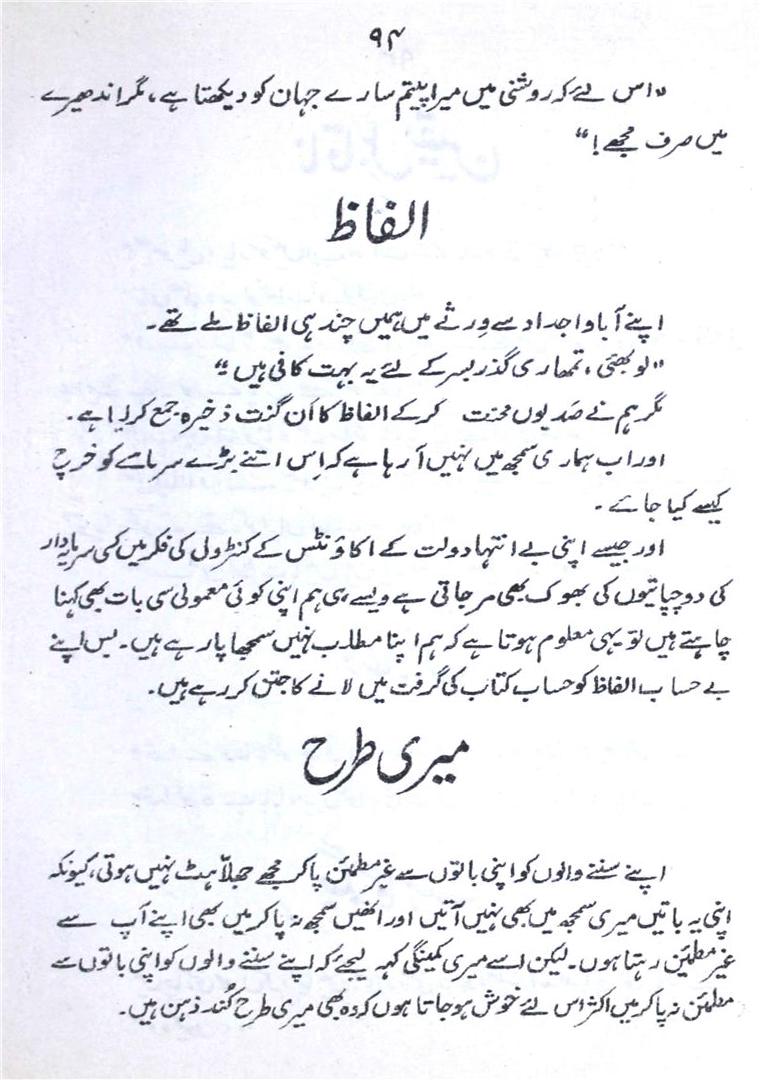 ۹۴
"اس لئے کہ روشنی میں میرا پیتم سارے جہان کو دیکھتا ہے، مگر اندھیرے
میں صرف مجھے!"
الفاظ
اپنے آبا و اجداد سے وِرثے میں ہمیں چند ہی الفاظ ملے تھے۔
"لو بھئی، تمھاری گذر بسر کے لئے یہ بہت کافی ہیں"
مگر ہم نے صَدیوں محنت کر کے الفاظ کا اَن گنت ذخیرہ جمع کر لیا ہے۔
اور اب ہماری سمجھ میں نہیں آ رہا ہے کہ اِس اتنے بڑے سرمائے کو خرچ
کیسے کیا جائے۔
اور جیسے اپنی بے انتہا دولت کے اکاؤنٹس کے کنٹرولی کی فکر میں کسی سرمایہ دار
کی دو چپاتیوں کی بھوک بھی مر جاتی ہے ویسے ہی ہم اپنی کوئی معمولی سی بات بھی کہنا
چاہتے ہیں تو یہی معلوم ہوتا ہے کہ ہم اپنا مطلب نہیں سمجھا پا رہے ہیں۔ بس اپنے
بے حساب الفاظ کو حساب کتاب کی گرفت میں لانے کا جتن کر رہے ہیں۔
میری طرح
اپنے سننے والوں کو اپنی باتوں سے غیر مطمئن پا کر مجھے جھلّاہٹ نہیں ہوتی، کیونکہ
اپنی یہ باتیں میری سمجھ میں بھی نہیں آتیں اور انھیں سمجھ نہ پا کر میں بھی اپنے آپ سے
غیر مطمئن رہتا ہوں۔ لیکن اسے میری کمینگی کہہ لیجئے کہ اپنے سننے والوں کو اپنی باتوں سے
مطمئن نہ پا کر میں اکثر اس لئے خوش ہو جاتا ہوں کہ وہ بھی میری طرح کُند ذہن ہیں۔